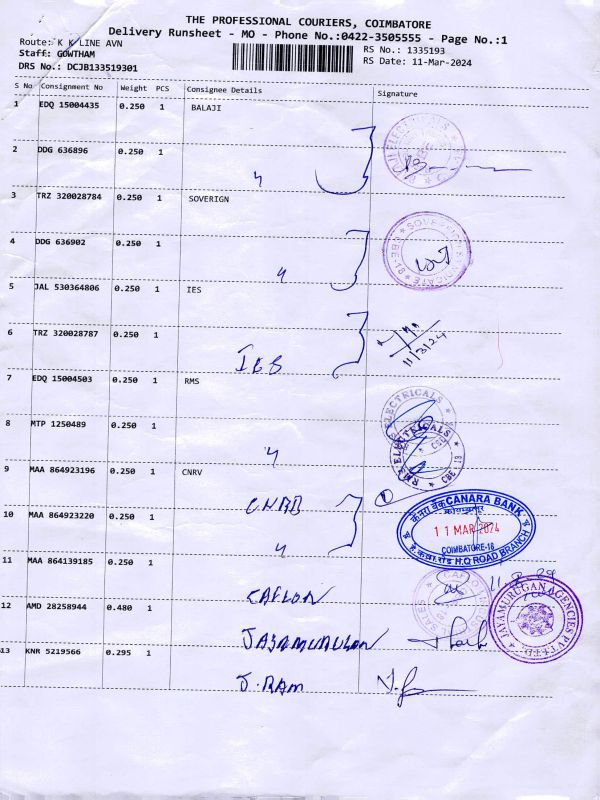 THE PROFESSIONAL COURIERS, COIMBATORE
Delivery Runsheet - MO - Phone No.:0422-3505555 - Page No.:1
Route: K K LINE AVN
RS No.: 1335193
Staff: GOWTHAM
RS Date: 11-Mar-2024
DRS No.: DCJB133519301
S No Consignment No Weight PCS Consignee Details Signature
1 EDQ 15004435 0.250 1 BALAJI
2 DDG 636896 0.250 1
3 TRZ 320028784 0.250 1 SOVERIGN
4 DDG 636902 0.250 1
5 JAL 530364806 0.250 1 IES
6 TRZ 320028787 0.250 1
11/3/24
7 EDQ 15004503 0.250 1 RMS
8 MTP 1250489 0.250 1
ELECTRICALS
RMS ELECTRICALS
9 MAA 864923196 0.250 1 CNRV
10 MAA 864923220 0.250 1
केनरा बैंक CANARA BANK
11 MAR 2024
COIMBATORE-18
H.O ROAD BRANCH
11 MAA 864139185 0.250 1
CAFLON
12 AMD 28258944 0.480 1
JAYAMURUGAN AGENCIES PVT LTD
13 KNR 5219566 0.295 1 J. RAM